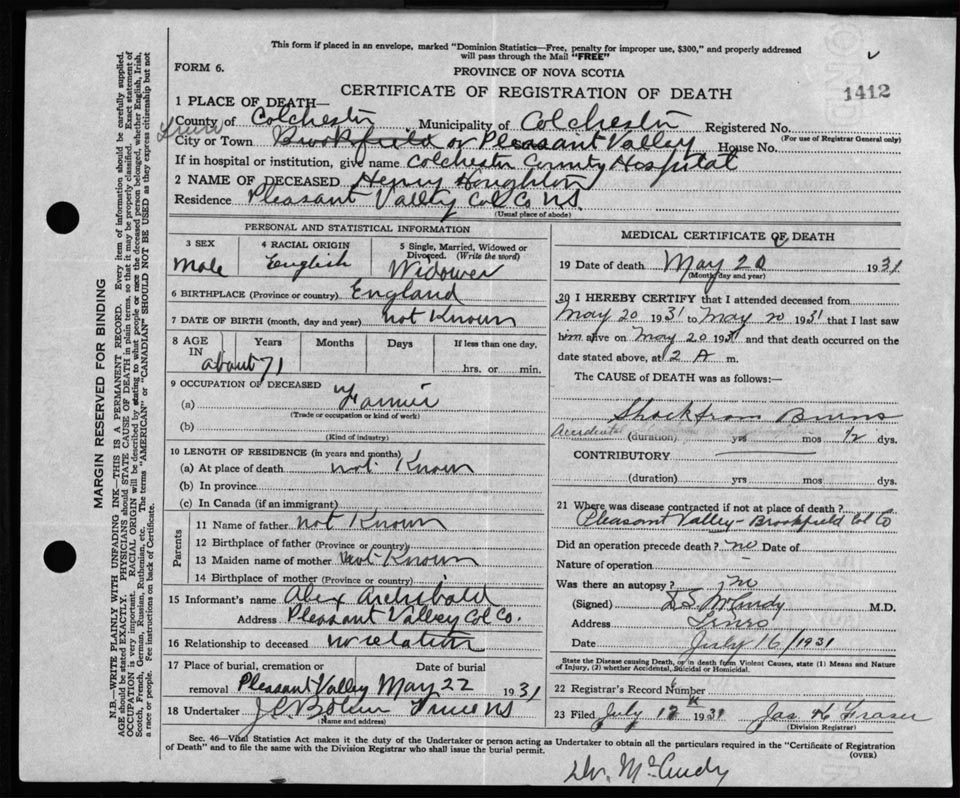 This form if placed in an envelope, marked "Dominion Statistics—Free, penalty for improper use, $300," and properly addressed
will pass through the Mail "FREE"
FORM 6.
PROVINCE OF NOVA SCOTIA
CERTIFICATE OF REGISTRATION OF DEATH
1412
1 PLACE OF DEATH—
County of Colchester Municipality of Colchester Registered No.
(For use of Registrar General only)
Truro
City or Town Brookfield or Pleasant Valley House No.
If in hospital or institution, give name Colchester County Hospital
2 NAME OF DECEASED Henry Houghton
Residence Pleasant Valley Col Co NS.
(Usual place of abode)
PERSONAL AND STATISTICAL INFORMATION
3 SEX 4 RACIAL ORIGIN 5 Single, Married, Widowed or
Divorced. (Write the word)
Male English Widower
6 BIRTHPLACE (Province or country) England
7 DATE OF BIRTH (month, day and year) not Known
8 AGE IN Years Months Days If less than one day,
about 71 hrs. or min.
9 OCCUPATION OF DECEASED
(a) Farmer
(Trade or occupation or kind of work)
(b)
(Kind of industry)
10 LENGTH OF RESIDENCE (in years and months)
(a) At place of death not Known
(b) In province
(c) In Canada (if an immigrant)
Parents
11 Name of father not Known
12 Birthplace of father (Province or country)
13 Maiden name of mother not Known
14 Birthplace of mother (Province or country)
15 Informant's name Alex Archibald
Address Pleasant Valley Col Co.
16 Relationship to deceased no relation
17 Place of burial, cremation or Date of burial
removal Pleasant Valley May 22 1931
18 Undertaker Truro NS
(Name and address)
MEDICAL CERTIFICATE OF DEATH
19 Date of death May 20 1931
(Month, day and year)
20 I HEREBY CERTIFY that I attended deceased from
May 20 1931 to May 20 1931 that I last saw
him alive on May 20 1931 and that death occurred on the
date stated above, at 2 A m.
The CAUSE of DEATH was as follows:—
Shock from Burns
Accidental
(duration) yrs mos 1/2 dys.
CONTRIBUTORY
(duration) yrs mos dys.
21 Where was disease contracted if not at place of death?
Pleasant Valley - Brookfield Col Co
Did an operation precede death? no Date of
Nature of operation
Was there an autopsy? no
(Signed) D.S. McCurdy M.D.
Address Truro
Date July 16/1931
State the Disease causing Death, or in death from Violent Causes, state (1) Means and Nature
of Injury, (2) whether Accidental, Suicidal or Homicidal.
22 Registrar's Record Number
23 Filed July 17 1931 Jas K Fraser
(Division Registrar)
Sec. 46—Vital Statistics Act makes it the duty of the Undertaker or person acting as Undertaker to obtain all the particulars required in the "Certificate of Registration
of Death" and to file the same with the Division Registrar who shall issue the burial permit.
(OVER)
Dr. McCurdy
MARGIN RESERVED FOR BINDING
N.B.—WRITE PLAINLY WITH UNFADING INK—THIS IS A PERMANENT RECORD. Every item of information should be carefully supplied.
AGE should be stated EXACTLY. PHYSICIANS should STATE CAUSE OF DEATH in plain terms, so that it may be properly classified. Exact statement of
OCCUPATION is very important. RACIAL ORIGIN will be described by stating to what people or race the deceased person belonged, whether English, Irish,
Scotch, French, German, Russian, Ruthenian, etc. The terms "AMERICAN" or "CANADIAN" SHOULD NOT BE USED as they express citizenship but not
a race or people. Fee instructions on back of Certificate.